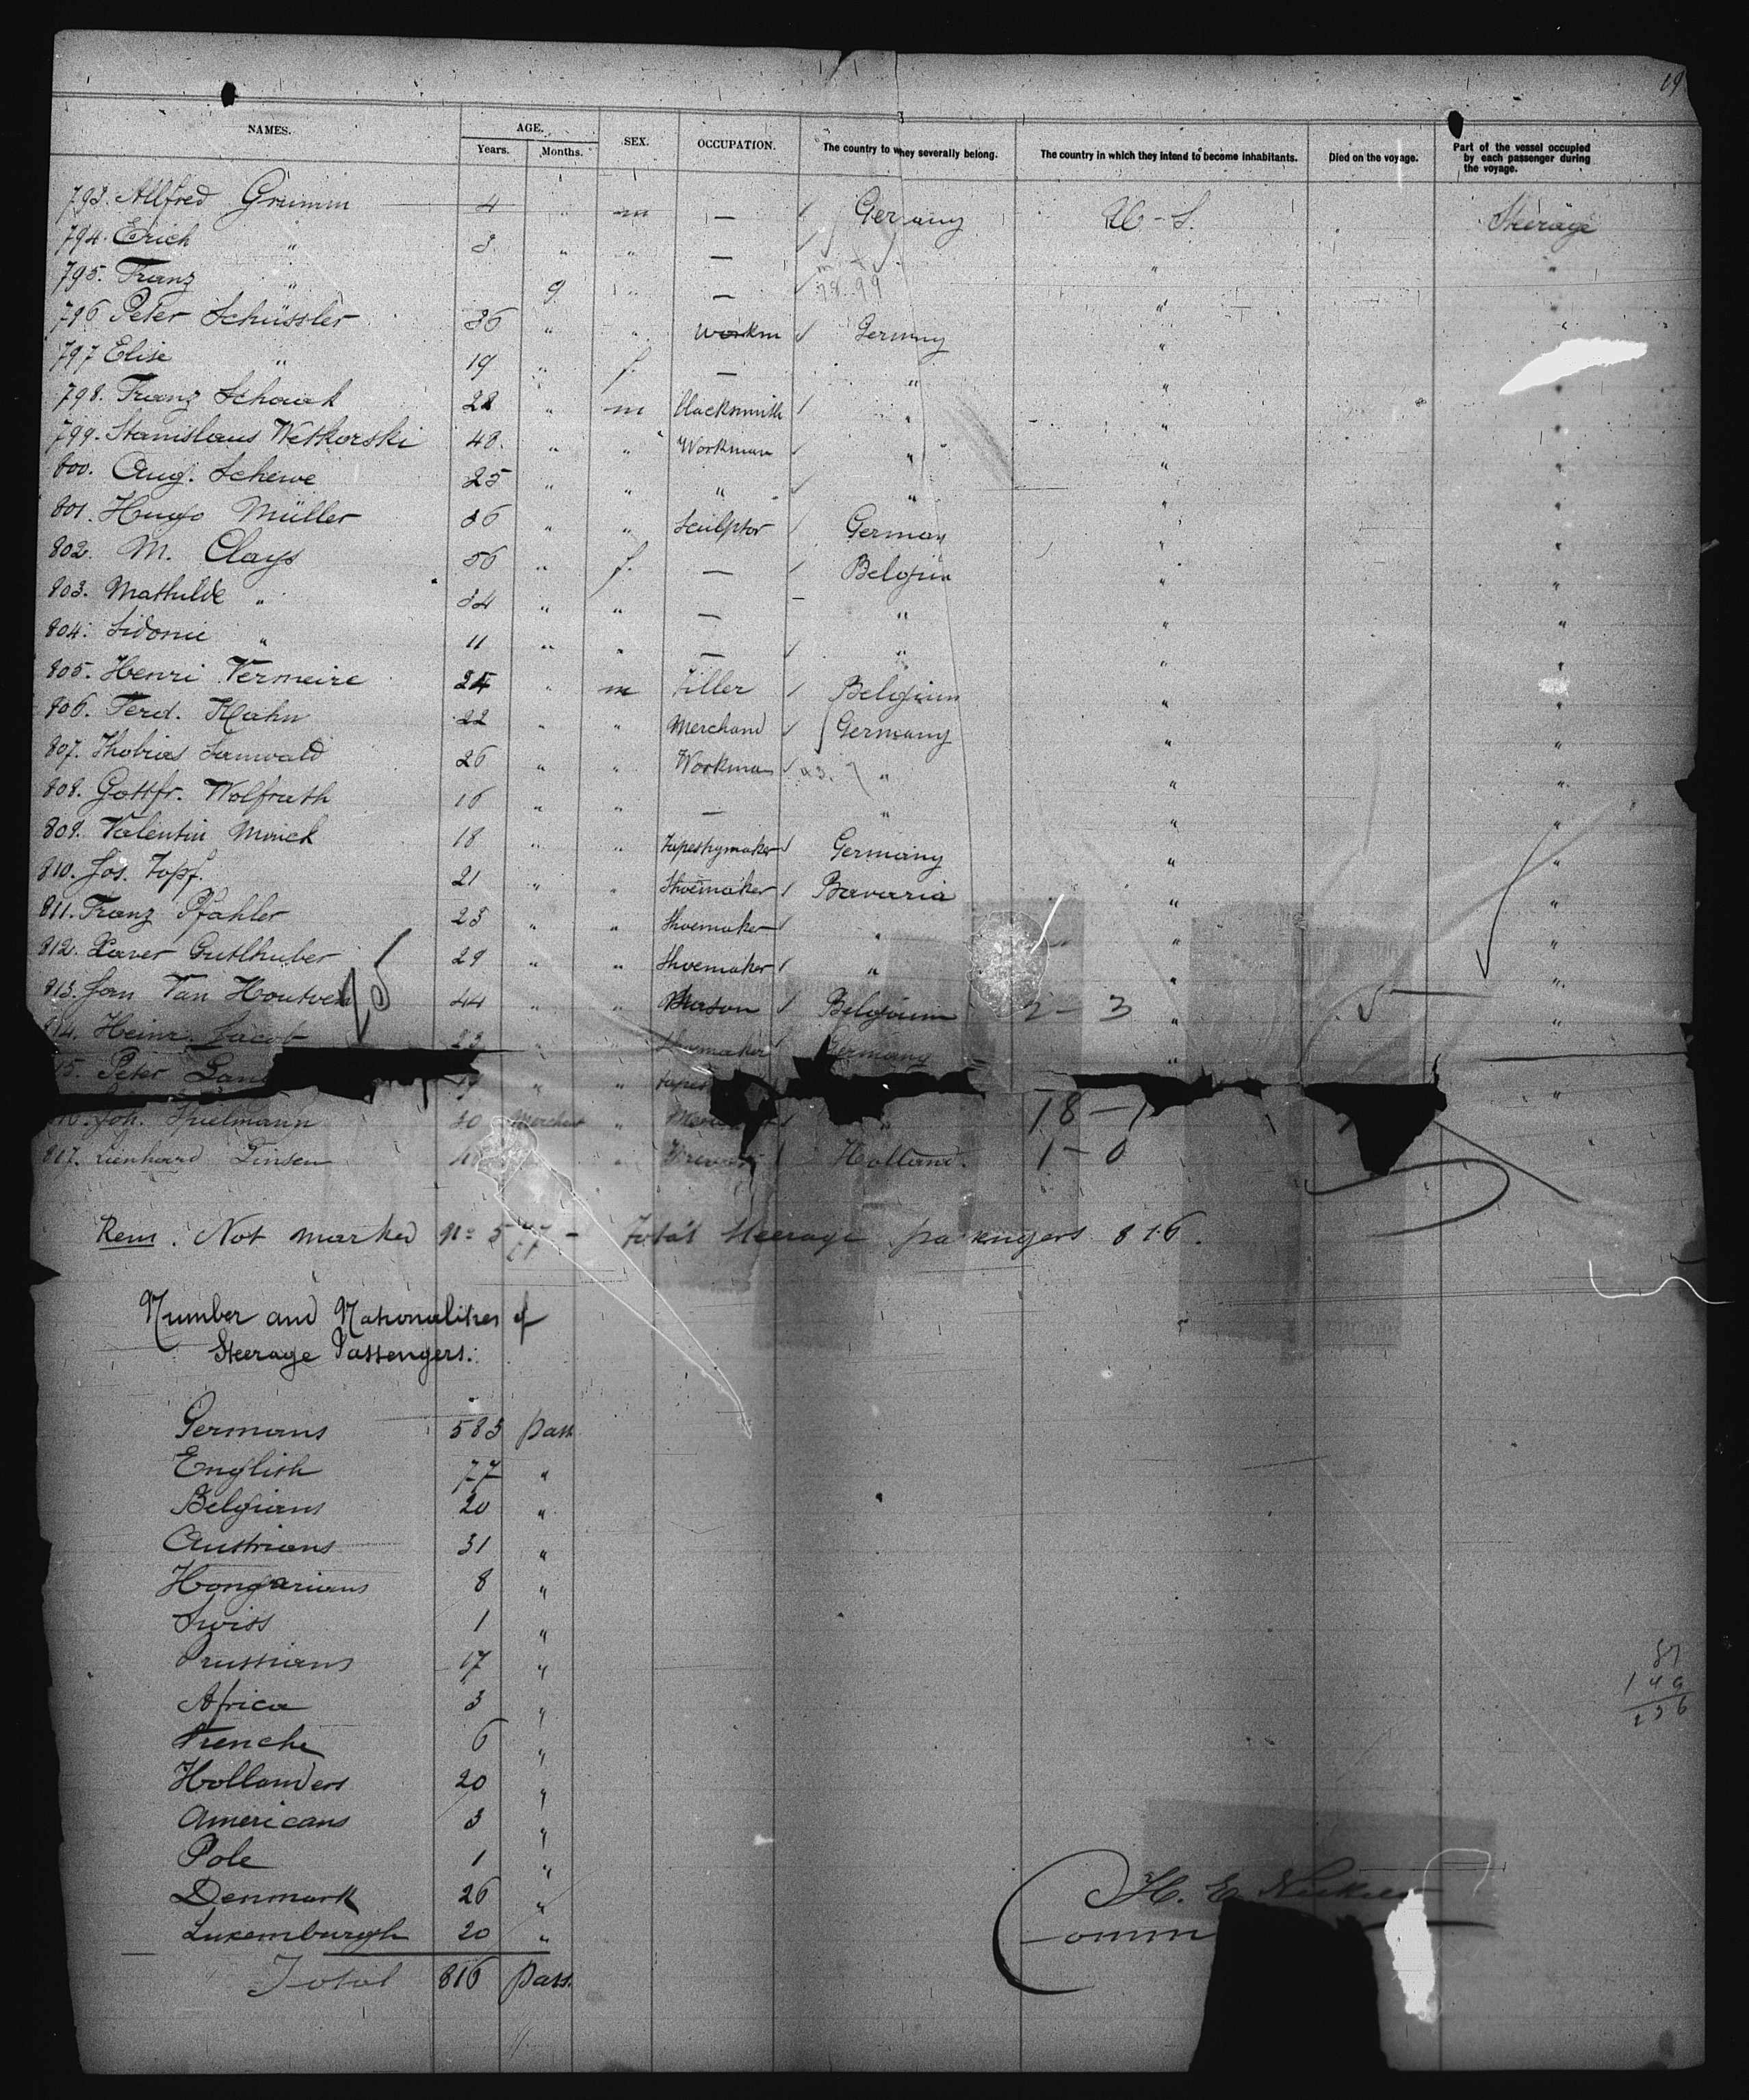 19
NAMES. AGE. Years. Months. SEX. OCCUPATION. The country to w hey severally belong. The country in which they intend to become inhabitants. Died on the voyage. Part of the vessel occupied by each passenger during the voyage.
793. Allfred Grumm 4 " m — Germany U-S. Steerage
794. Erich " 3 " " — " "
795. Franz " 9 " — " "
796 Peter Schüssler 36 " " workm Germany " "
797 Elise " 19 " f. — " " "
798. Franz Schauk 28 " m blacksmith " " "
799. Stanislaus Wetkorski 48. " " Workman " " "
800. Aug. Schewe 25 " " " " " "
801. Hugo Müller 36 " " Sculptor German " "
802. M. Clays 56 " f. — Belgium " "
803. Mathilde " 34 " " — " " "
804. Sidonie " 11 " " — " " "
805. Henri Vermeire 24 " m Tiller Belgium " "
806. Ferd. Hahn 22 " " Merchand Germany " "
807. Thobias Sanwald 26 " " Workman " " "
808. Gottfr. Wolfrath 16 " " — " " "
809. Valentin Minck 18 " " tapestrymaker Germany " "
810. Jos. Topf. 21 " " Shoemaker Bavaria " "
811. Franz Pfahler 25 " " Shoemaker " " "
812. Xaver Gutlhuber 29 " " Shoemaker " " "
813. Jan Van Houtven 44 " " Mason Belgium 2 - 3 " "
14. Heinr. Jacob 23 " " Shoemaker Germany " "
15. Peter 19 " " "
Joh. Spielmann 30 Merchant " " 18 -
817. Lienhard Tinsen " Holland. 1 - 0
Rem. Not marked No 577 - Total steerage passengers 816.
Number and Nationalities of
Steerage Passengers:
Germans 583 pass
English 77 "
Belgians 20 "
Austrians 31 "
Hongarians 8 "
Swiss 1 "
Prussians 17 "
Africa 3 "
Frenche 6 "
Hollanders 20 "
Americans 3 "
Pole 1 "
Denmark 26 "
Luxemburgh 20 "
Total 816 pass.
H. E.
Comm